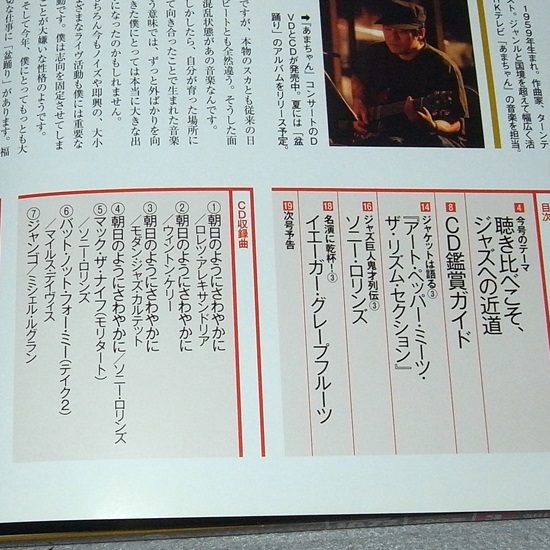 1959年生まれ。作曲家、ターンテ
スト。ジャンルと国境を超えて幅広く活
Kテレビ「あまちゃん」の音楽を担当。
➡「あまちゃん」コンサートのD
VDとCDが発売中。夏には「盆
踊り」のアルバムをリリース予定。
ですが、本物のスカとも従来の日
ビートとも全然違う。そうした面
混乱状態があの音楽なんです。
しかしたら、自分が育った場所に
て向き合ったことで生まれた音楽
う意味では、ずっと外ばかりを向
きた僕にとっては本当に大きな出
になったのかもしれません。
ちろん今もノイズや即興の、大小
まなライヴ活動も僕には重要な
動です。僕は志向を固定させてしま
ことが大嫌いな性格のようです。
そして今年、僕にとってもっとも大
切な仕事に「盆踊り」があります。福
目次
4 今号のテーマ
聴き比べこそ、
ジャズへの近道
8 CD鑑賞ガイド
14 ジャケットは語る③
『アート・ペッパー・ミーツ・
ザ・リズム・セクション』
16 ジャズ巨人鬼才列伝③
ソニー・ロリンズ
18 名演に乾杯!③
イエーガー・グレープフルーツ
19 次号予告
CD収録曲
①朝日のようにさわやかに
／ロレツ・アレキサンドリア
②朝日のようにさわやかに
／ウィントン・ケリー
③朝日のようにさわやかに
／モダン・ジャズ・カルテット
④朝日のようにさわやかに／ソニー・ロリンズ
⑤マック・ザ・ナイフ(モリタート)
／ソニー・ロリンズ
⑥バット・ノット・フォー・ミー(テイク2)
／マイルス・デイヴィス
⑦ジャンゴ／ミシェル・ルグラン